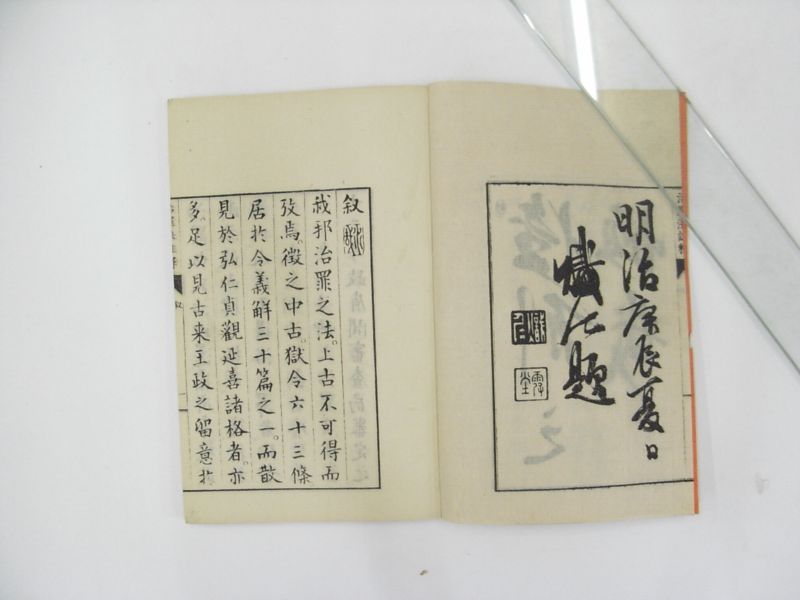 明治庚辰夏日
題
叙
我邦治罪之法。上古不可得而
攷焉。徵之中古。獄令六十三條
居於令義解三十篇之一。而散
見於弘仁貞觀延喜諸格者。亦
多。足以見古来王政之留意於